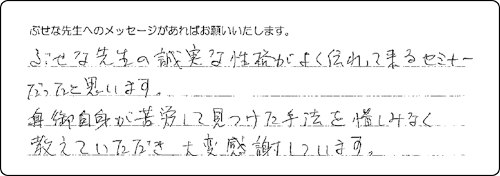 ぶせな先生へのメッセージがあればお願いいたします。
ぶせな先生の誠実な性格がよく伝わって来るセミナー
だったと思います。
御自身が苦労して見つけた手法を惜しみなく
教えていただき大変感謝しています。